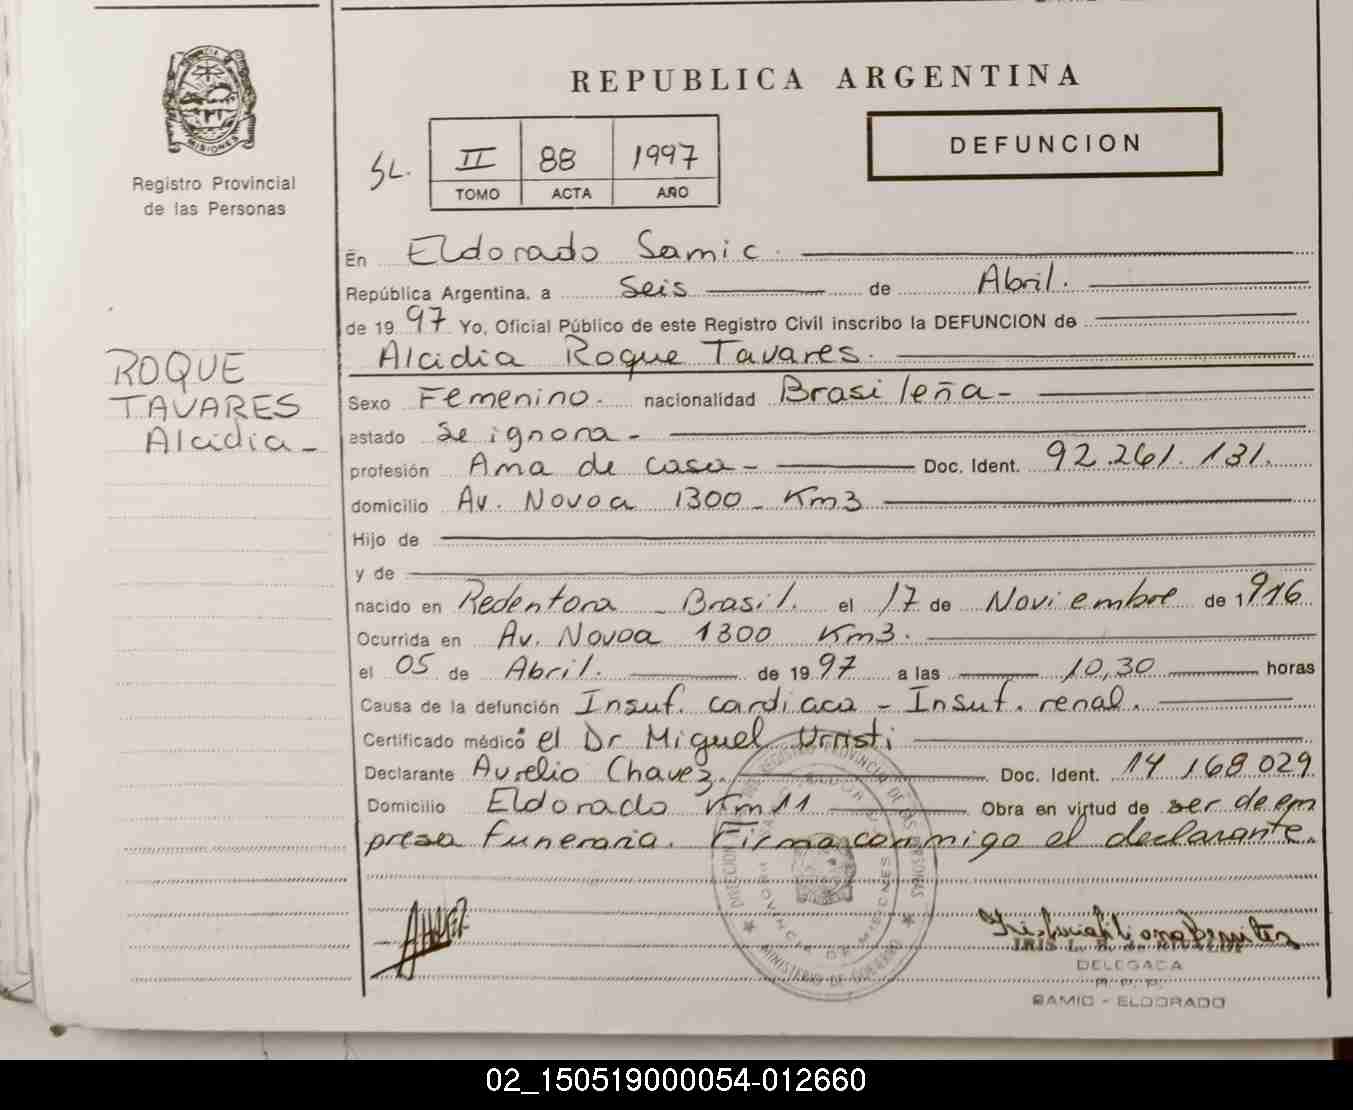 REPUBLICA ARGENTINA
MISIONES
Registro Provincial
de las Personas
SL.
II 88 1997
TOMO ACTA AÑO
DEFUNCION
ROQUE
TAVARES
Alcidia -
En Eldorado Samic.
República Argentina, a Seis de Abril.
de 19 97 Yo, Oficial Público de este Registro Civil inscribo la DEFUNCION de
Alcidia Roque Tavares.
Sexo Femenino. nacionalidad Brasileña -
estado Se ignora -
profesión Ama de casa - Doc. Ident. 92.261.131.
domicilio Av. Novoa 1300 - Km3
Hijo de
y de
nacido en Redentora - Brasil. el 17 de Noviembre de 1916
Ocurrida en Av. Novoa 1300 Km3.
el 05 de Abril. de 19 97 a las 10,30 horas
Causa de la defunción Insuf. cardiaca - Insuf. renal.
Certificado médico el Dr Miguel
Declarante Aurelio Chavez. Doc. Ident. 14 168 029
Domicilio Eldorado Km 11 Obra en virtud de ser de em
presa funeraria. Firma conmigo el declarante.
PROVINCIA DE MISIONES
MINISTERIO DE GOBIERNO
DELEGADA
R. P. P.
SAMIC - ELDORADO
02_150519000054-012660